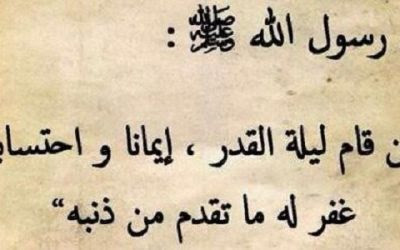 رسول الله ﷺ :
ن قام ليلة القدر ، إيمانا و احتساب
غفر له ما تقدم من ذنبه“